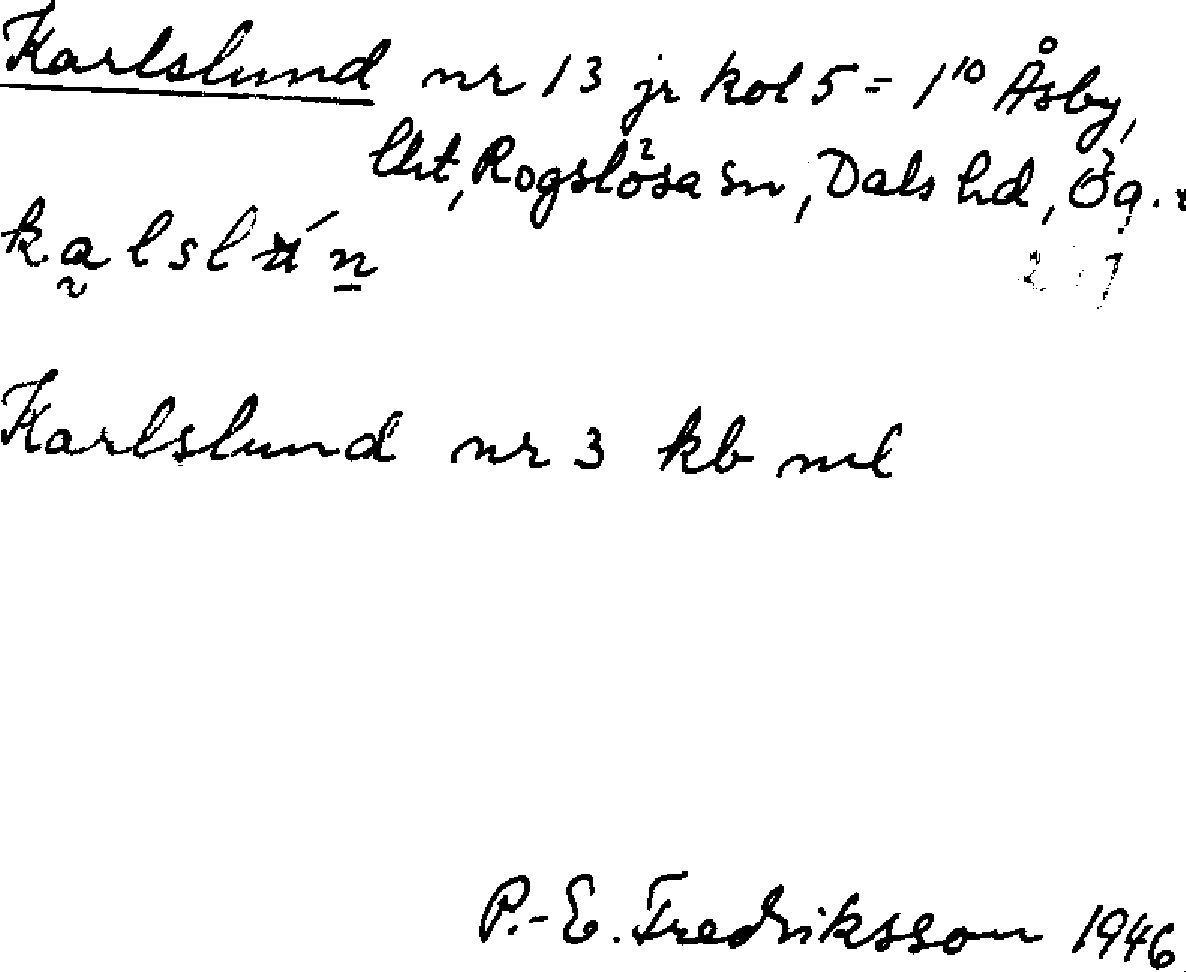 Karlslund nr 13 jr kol 5 = 1¹⁰ Åsby,
lht, Rogslösa sn, Dals hd, Ög.
Karlslund nr 3 kb ml
P.-E. Fredriksson 1946